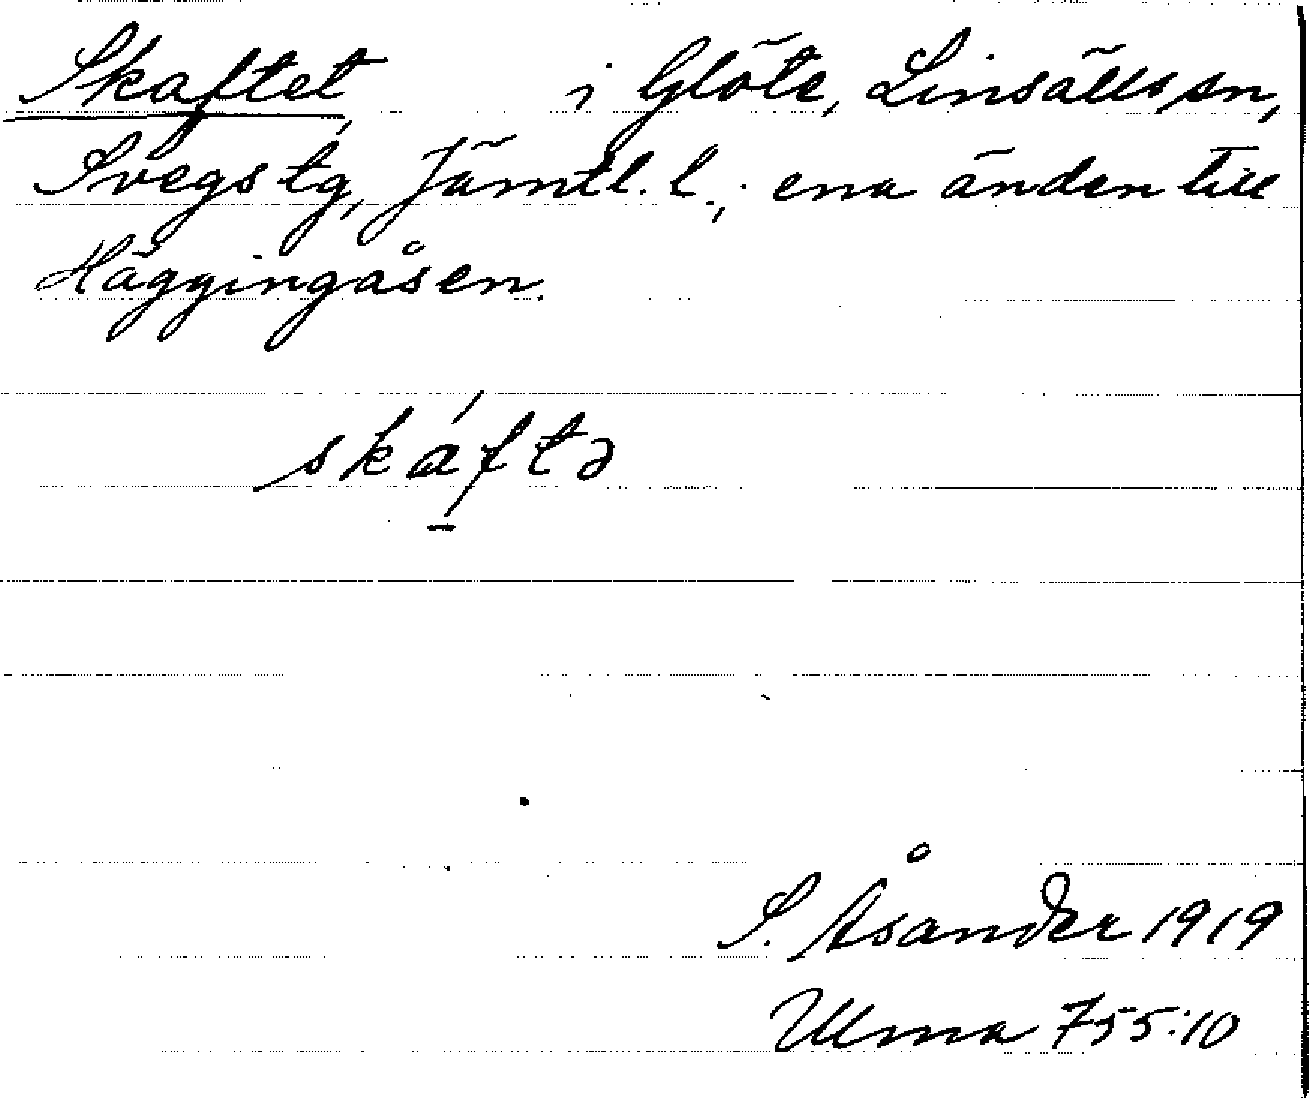 Skaftet, i Glöte, Linsälls sn,
Svegs tg, Jämtl. l.; ena änden till
Häggingåsen.
skáftə
S. Åsander 1919
Ulma 755:10